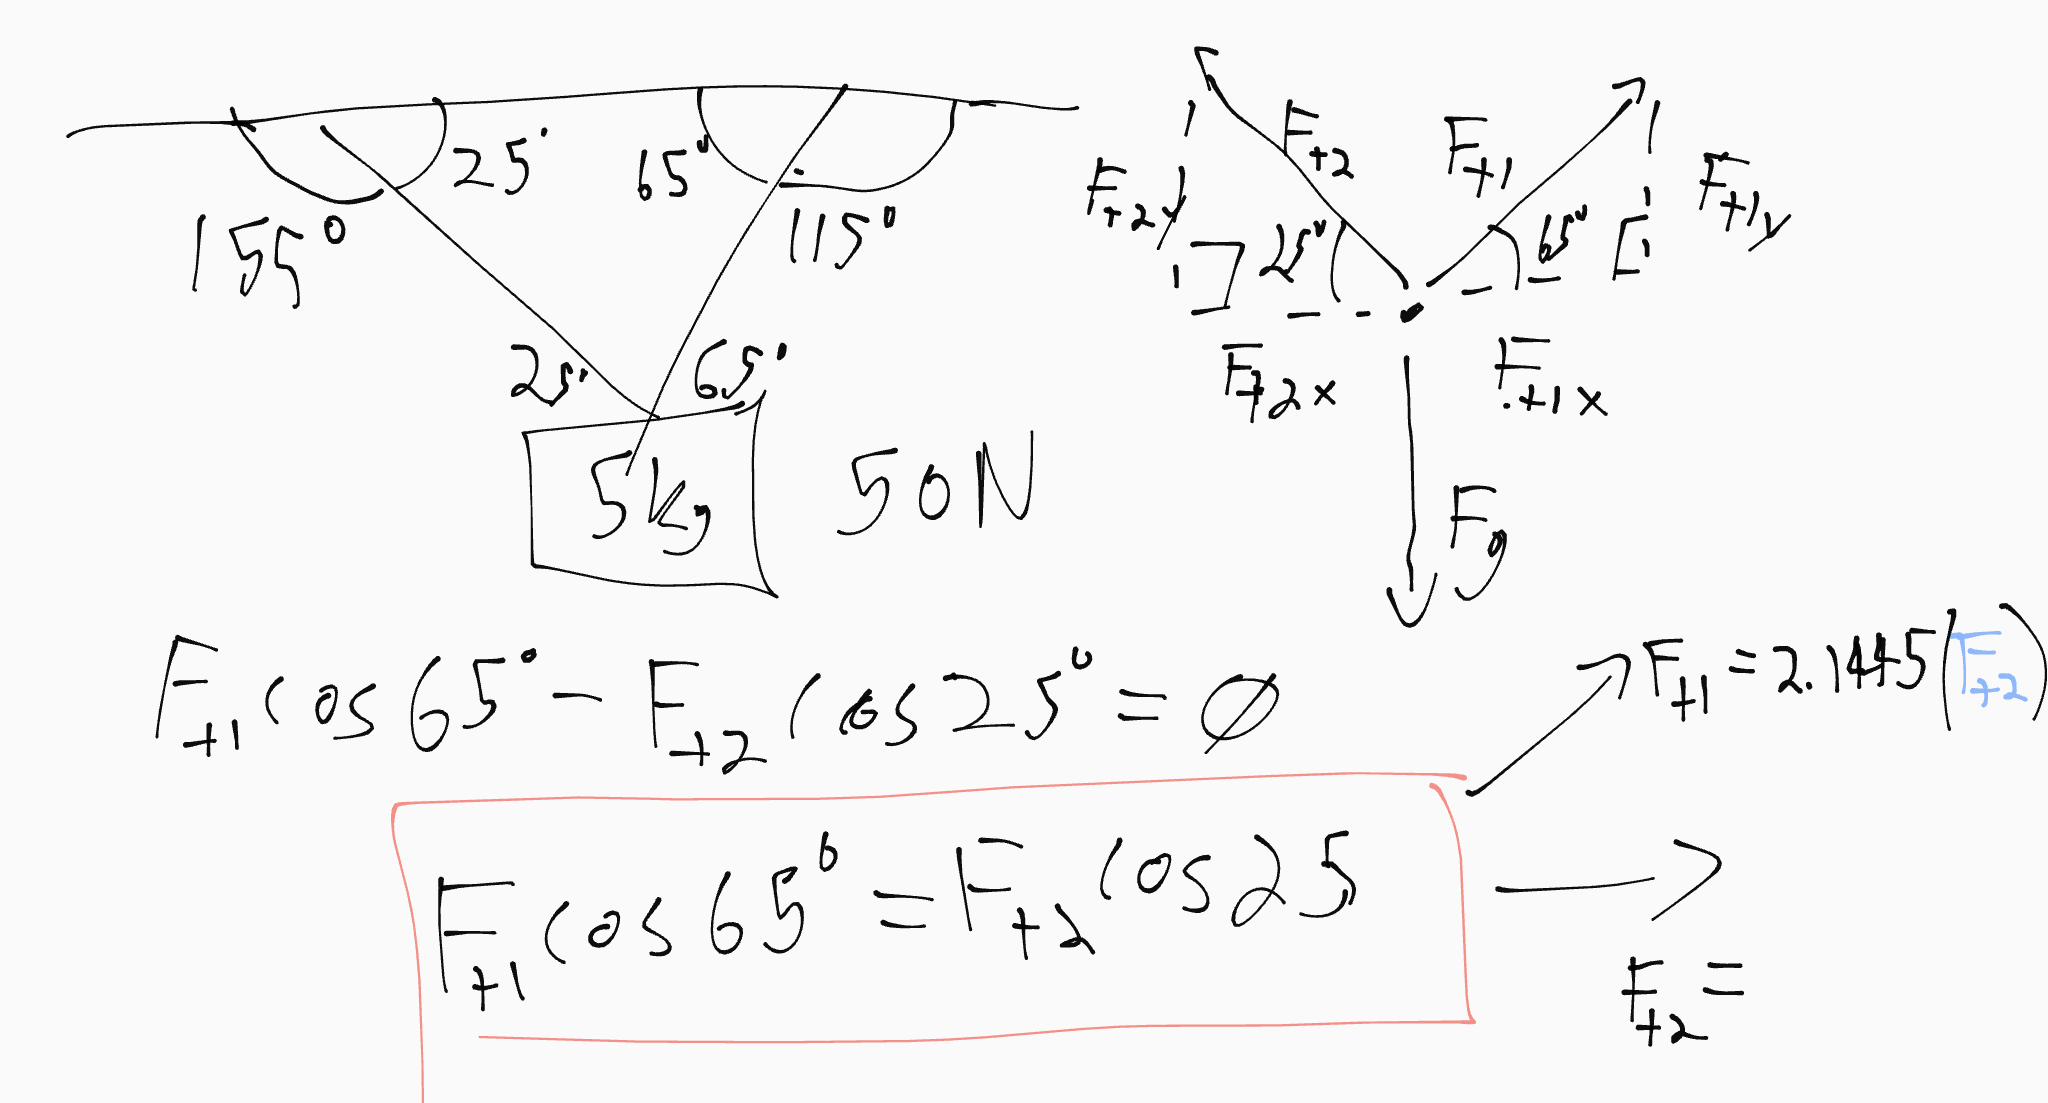 25°
65°
155°
115°
25°
65°
5kg
50N
Ft2
Ft1
Ft2y
Ft1y
25°
65°
Ft2x
Ft1x
Fg
Ft1 cos65° - Ft2 cos25° = Ø
Ft1 = 2.1445(Ft2)
Ft1 cos65° = Ft2 cos25
Ft2 =